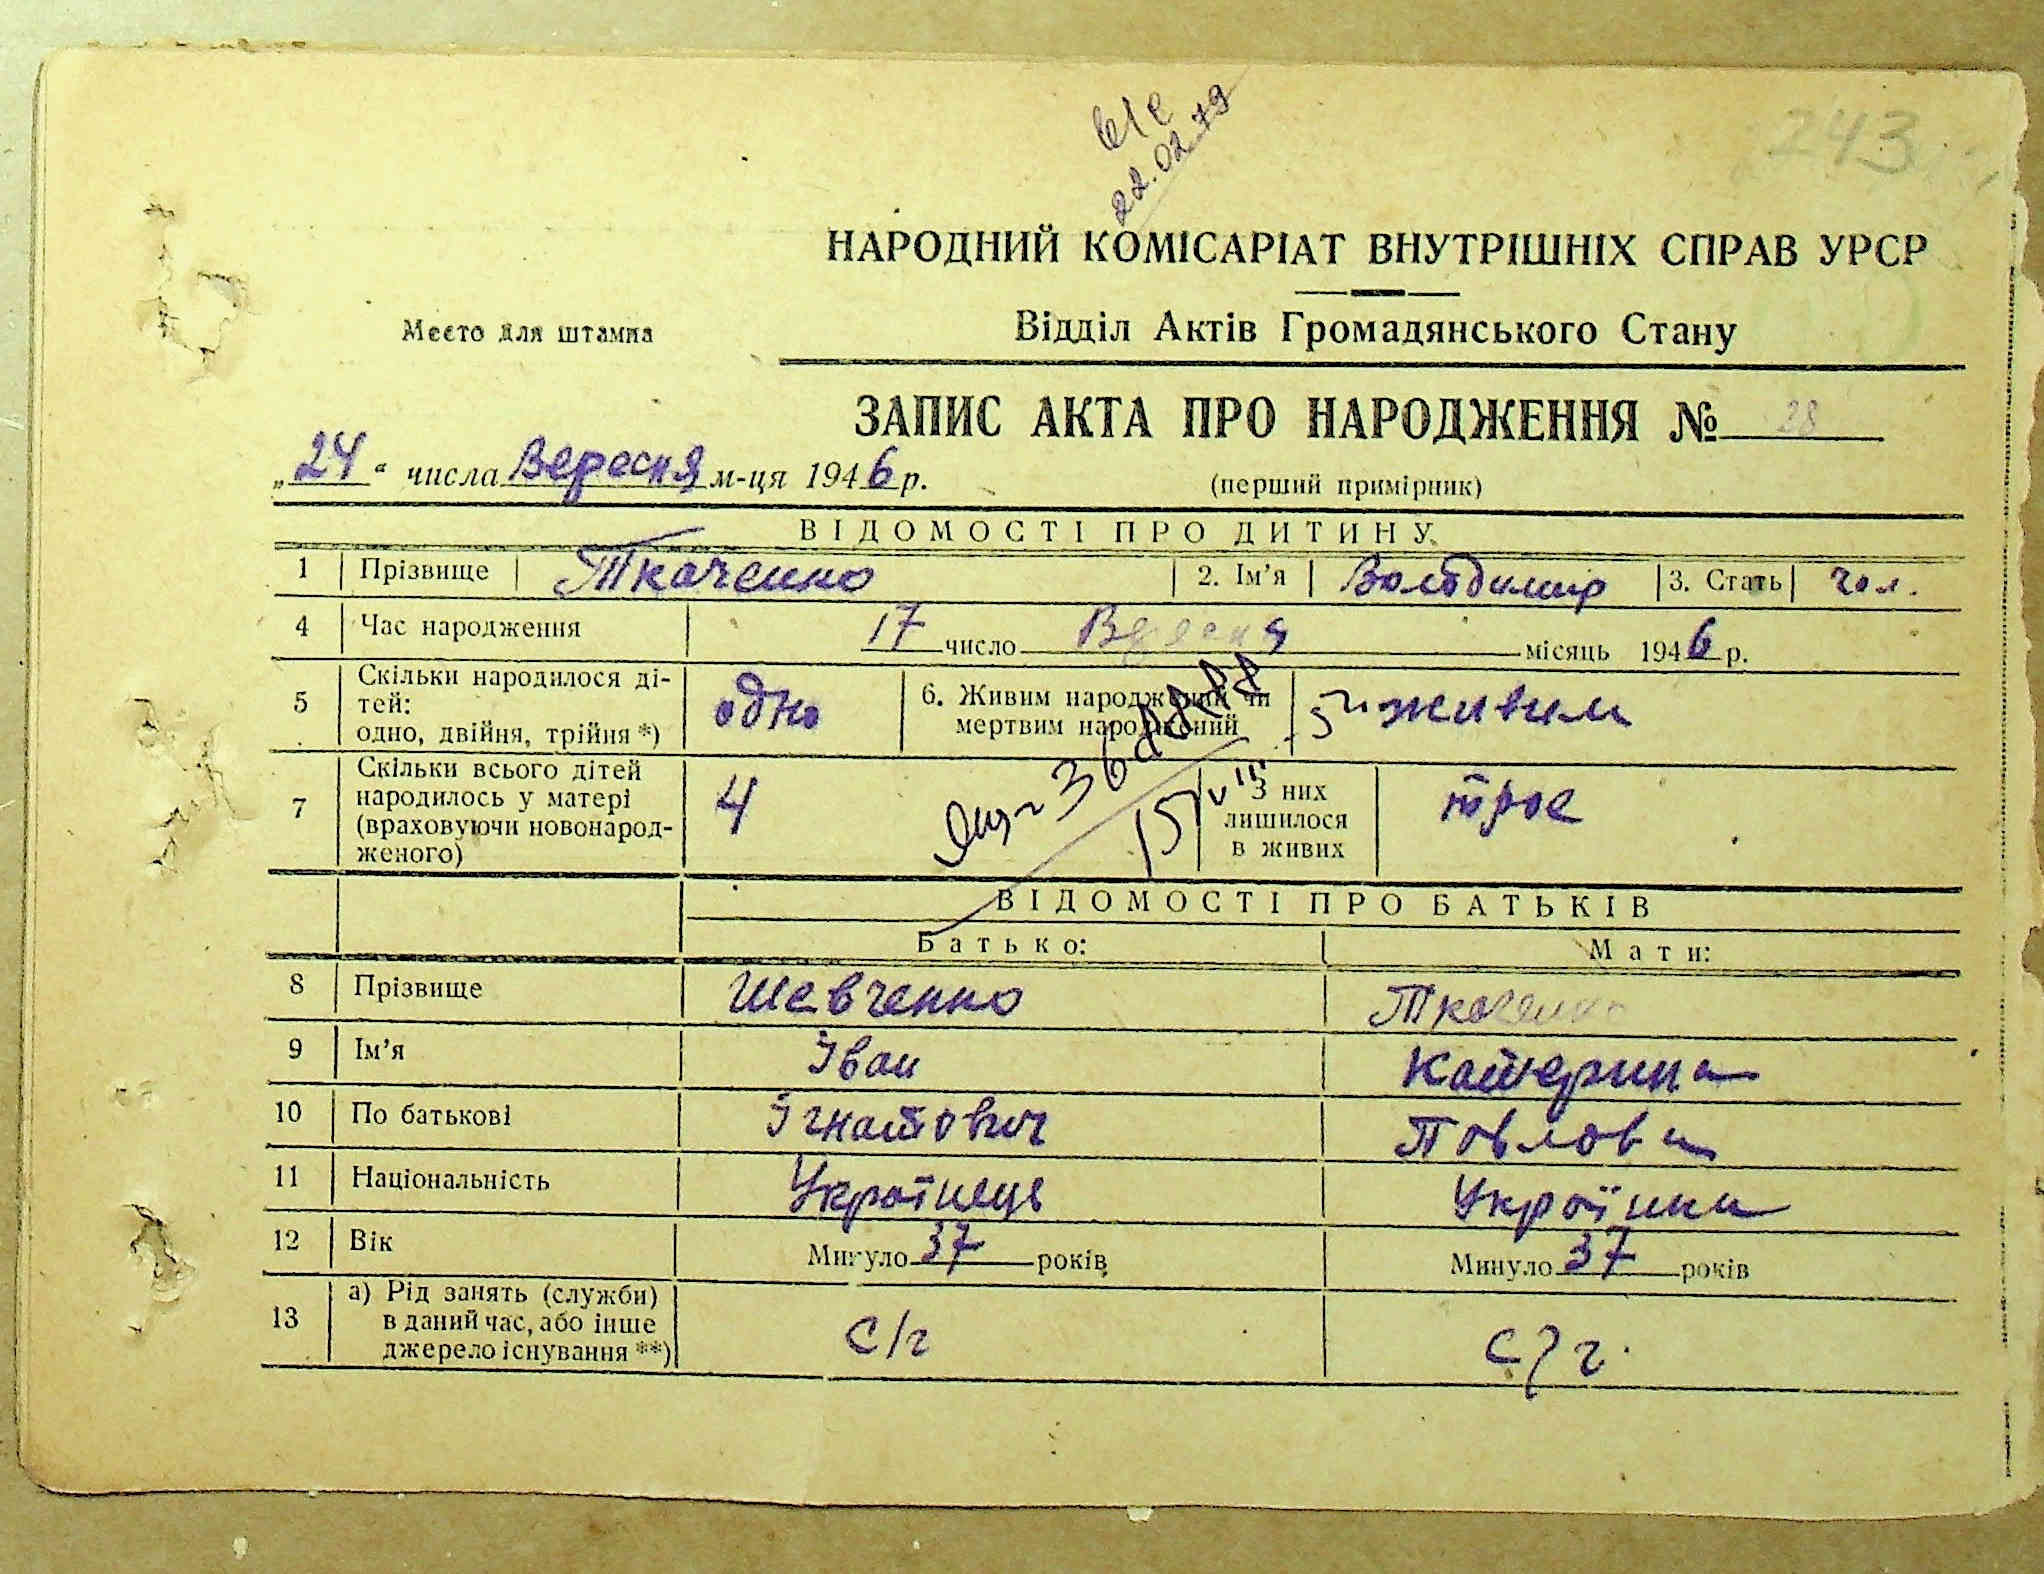 243
22.02.79
НАРОДНИЙ КОМІСАРІАТ ВНУТРІШНІХ СПРАВ УРСР
Место для штампа
Відділ Актів Громадянського Стану
ЗАПИС АКТА ПРО НАРОДЖЕННЯ № 28
„24“ числа Вересня м-ця 1946 р.
(перший примірник)
ВІДОМОСТІ ПРО ДИТИНУ
1 Прізвище Ткаченко 2. Ім’я Володимир 3. Стать чол.
4 Час народження 17 число Вересня місяць 1946 р.
5 Скільки народилося ді-
тей:
одно, двійня, трійня *) одно
6. Живим народжений чи
мертвим народжений живим
7 Скільки всього дітей
народилось у матері
(враховуючи новонарод-
женого) 4
З них
лишилося
в живих троє
15/VIII
ВІДОМОСТІ ПРО БАТЬКІВ
Батько: Мати:
8 Прізвище Шевченко Ткаченко
9 Ім’я Іван Катерина
10 По батькові Ігнатович Повловна
11 Національність Українець Українка
12 Вік Минуло 37 років Минуло 37 років
13 а) Рід занять (служби)
в даний час, або інше
джерело існування **) с/г с/г.